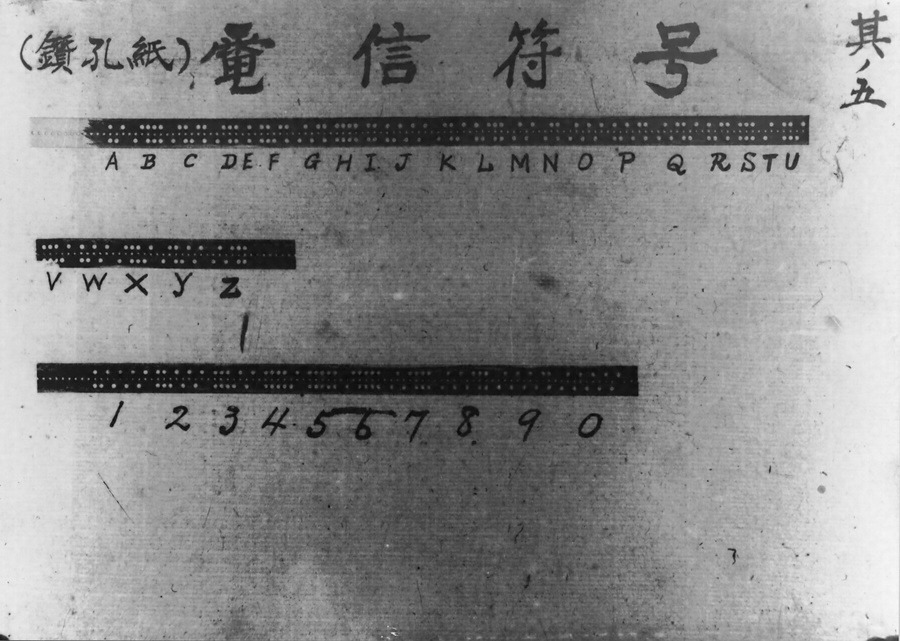 (鑽孔紙) 電信符号
其ノ五
A B C D E F G H I J K L M N O P Q R S T U
V W X Y Z
1 2 3 4 5 6 7 8 9 0